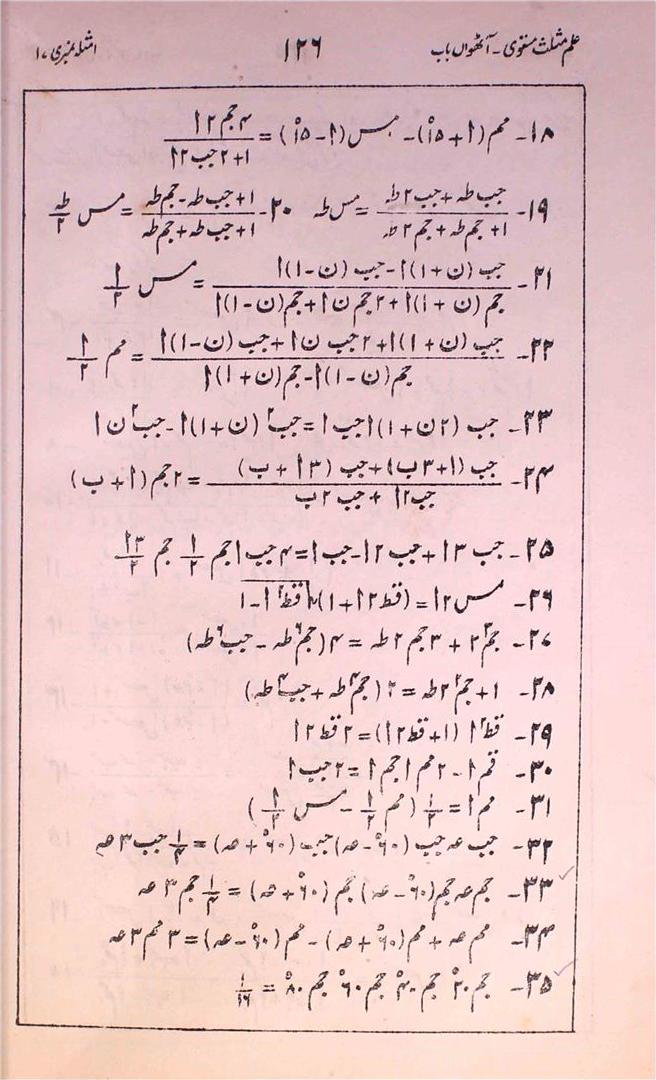 علم مثلث مستوی - آٹھواں باب ۱۲۶ امثلہ نمبری ۱۷
۱۸- مم(ا+۱۵°)- مس(ا-۱۵°) = ۴جم۲ا / ۱+۲جب۲ا
۱۹- جب طہ+جب۲طہ / ۱+جم طہ+جم۲طہ = مس طہ ۲۰- ۱+جب طہ-جم طہ / ۱+جب طہ+جم طہ = مس طہ/۲
۲۱- جب(ن+۱)ا-جب(ن-۱)ا / جم(ن+۱)ا+۲جم ن ا+جم(ن-۱)ا = مس ا/۲
۲۲- جب(ن+۱)ا+۲جب ن ا+جب(ن-۱)ا / جم(ن-۱)ا-جم(ن+۱)ا = مم ا/۲
۲۳- جب(۲ن+۱)ا جب ا = جب²(ن+۱)ا-جب²ن ا
۲۴- جب(ا+۳ب)+جب(۳ا+ب) / جب۲ا+جب۲ب = ۲جم(ا+ب)
۲۵- جب۳ا+جب۲ا-جب ا = ۴جب ا جم ا/۲ جم ۳ا/۲
۲۶- مس۲ا = (قط۲ا+۱)√قط²ا-۱
۲۷- جم³۲طہ+۳جم۲طہ = ۴(جم⁶طہ-جب⁶طہ)
۲۸- ۱+جم²۲طہ = ۲(جم⁴طہ+جب⁴طہ)
۲۹- قط²ا(۱+قط۲ا) = ۲قط۲ا
۳۰- قم ا-۲مم ا جم ا = ۲جب ا
۳۱- مم ا = ۱/۲(مم ا/۲-مس ا/۲)
۳۲- جب عہ جب(۶۰°-عہ)جب(۶۰°+عہ) = ۱/۴ جب۳عہ
۳۳- جم عہ جم(۶۰°-عہ)جم(۶۰°+عہ) = ۱/۴ جم۳عہ
۳۴- مم عہ+مم(۶۰°+عہ)-مم(۶۰°-عہ) = ۳مم۳عہ
۳۵- جم۲۰° جم۴۰° جم۶۰° جم۸۰° = ۱/۱۶